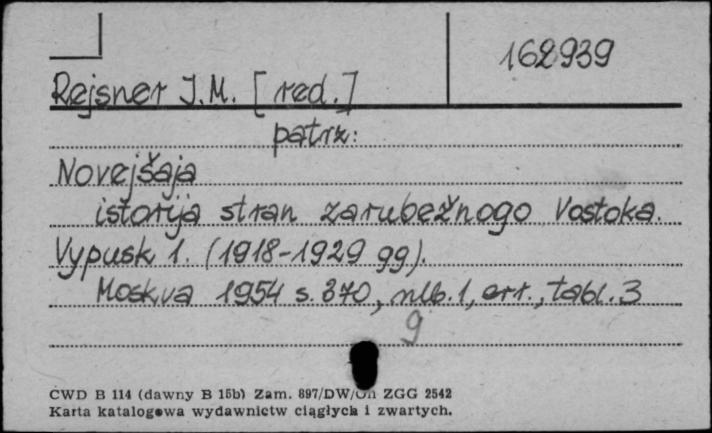 162939
Rejsner J.M. [red.]
patrz:
Novejšaja
istorija stran zarubežnogo Vostoka.
Vypusk 1. (1918-1929 gg).
Moskva 1954 s. 370, nlb. 1, err., tabl. 3
9
CWD B 114 (dawny B 15b) Zam. 897/DW/Un ZGG 2542
Karta katalogowa wydawnictw ciągłych i zwartych.